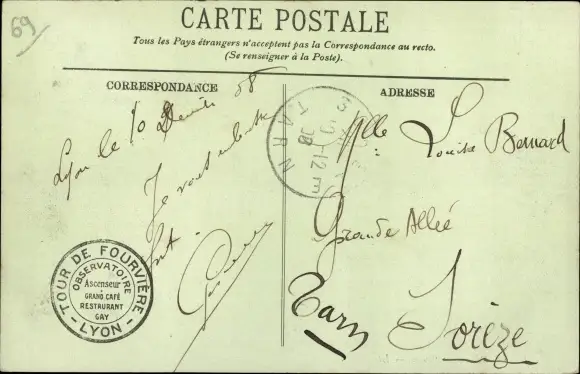 69
CARTE POSTALE
Tous les Pays étrangers n'acceptent pas la Correspondance au recto.
(Se renseigner à la Poste).
CORRESPONDANCE
ADRESSE
Lyon le 10
08
Je vous
TARN
08
Mlle Louise Bernard
Grande Allée
Tarn
Sorèze
TOUR DE FOURVIÈRE
OBSERVATOIRE
Ascenseur
GRAND CAFÉ
RESTAURANT
GAY
LYON